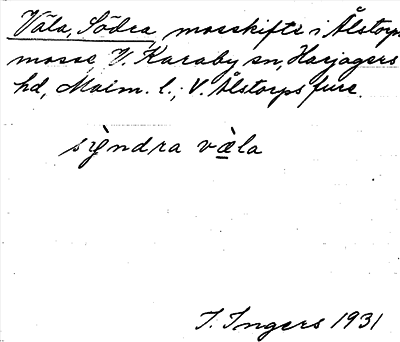 Våla, Södra, mosskifte i Ålstorps
mosse, V. Karaby sn, Harjagers
hd, Malm. l.; V. Ålstorps fure.
sỳndra væ̀la
I. Ingers 1931